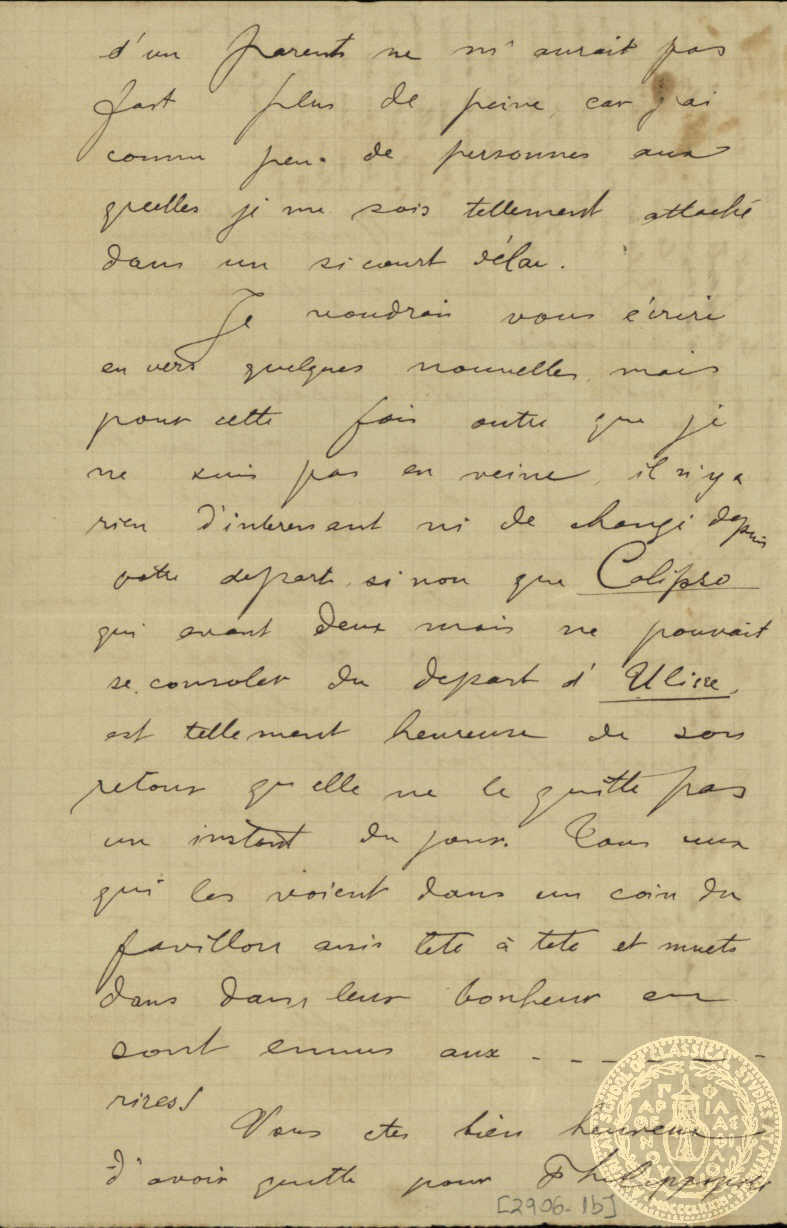 d'un parent ne m'aurait pas
fait plus de peine, car j'ai
connu peu de personnes aux
quelles je me sois tellement attaché
dans un si court délai.
Je voudrais vous écrire
en vers quelques nouvelles, mais
pour cette fois outre que je
ne suis pas en veine, il n'y a
rien d'interessant ni de changé depuis
votre depart, si non que Calipso
qui avant deux mois ne pouvait
se consoler du depart d'Ulisse,
est tellement heureuse de son
retour qu'elle ne le quitte pas
un instant du jour. Tous ceux
qui les voient dans un coin du
pavillon assis tete à tete et muets
dans dans leur bonheur en
sont emus aux - - - - - -
rires!
Vous etes bien heureux
d'avoir quitté pour Philippopoli
[2906-1b]